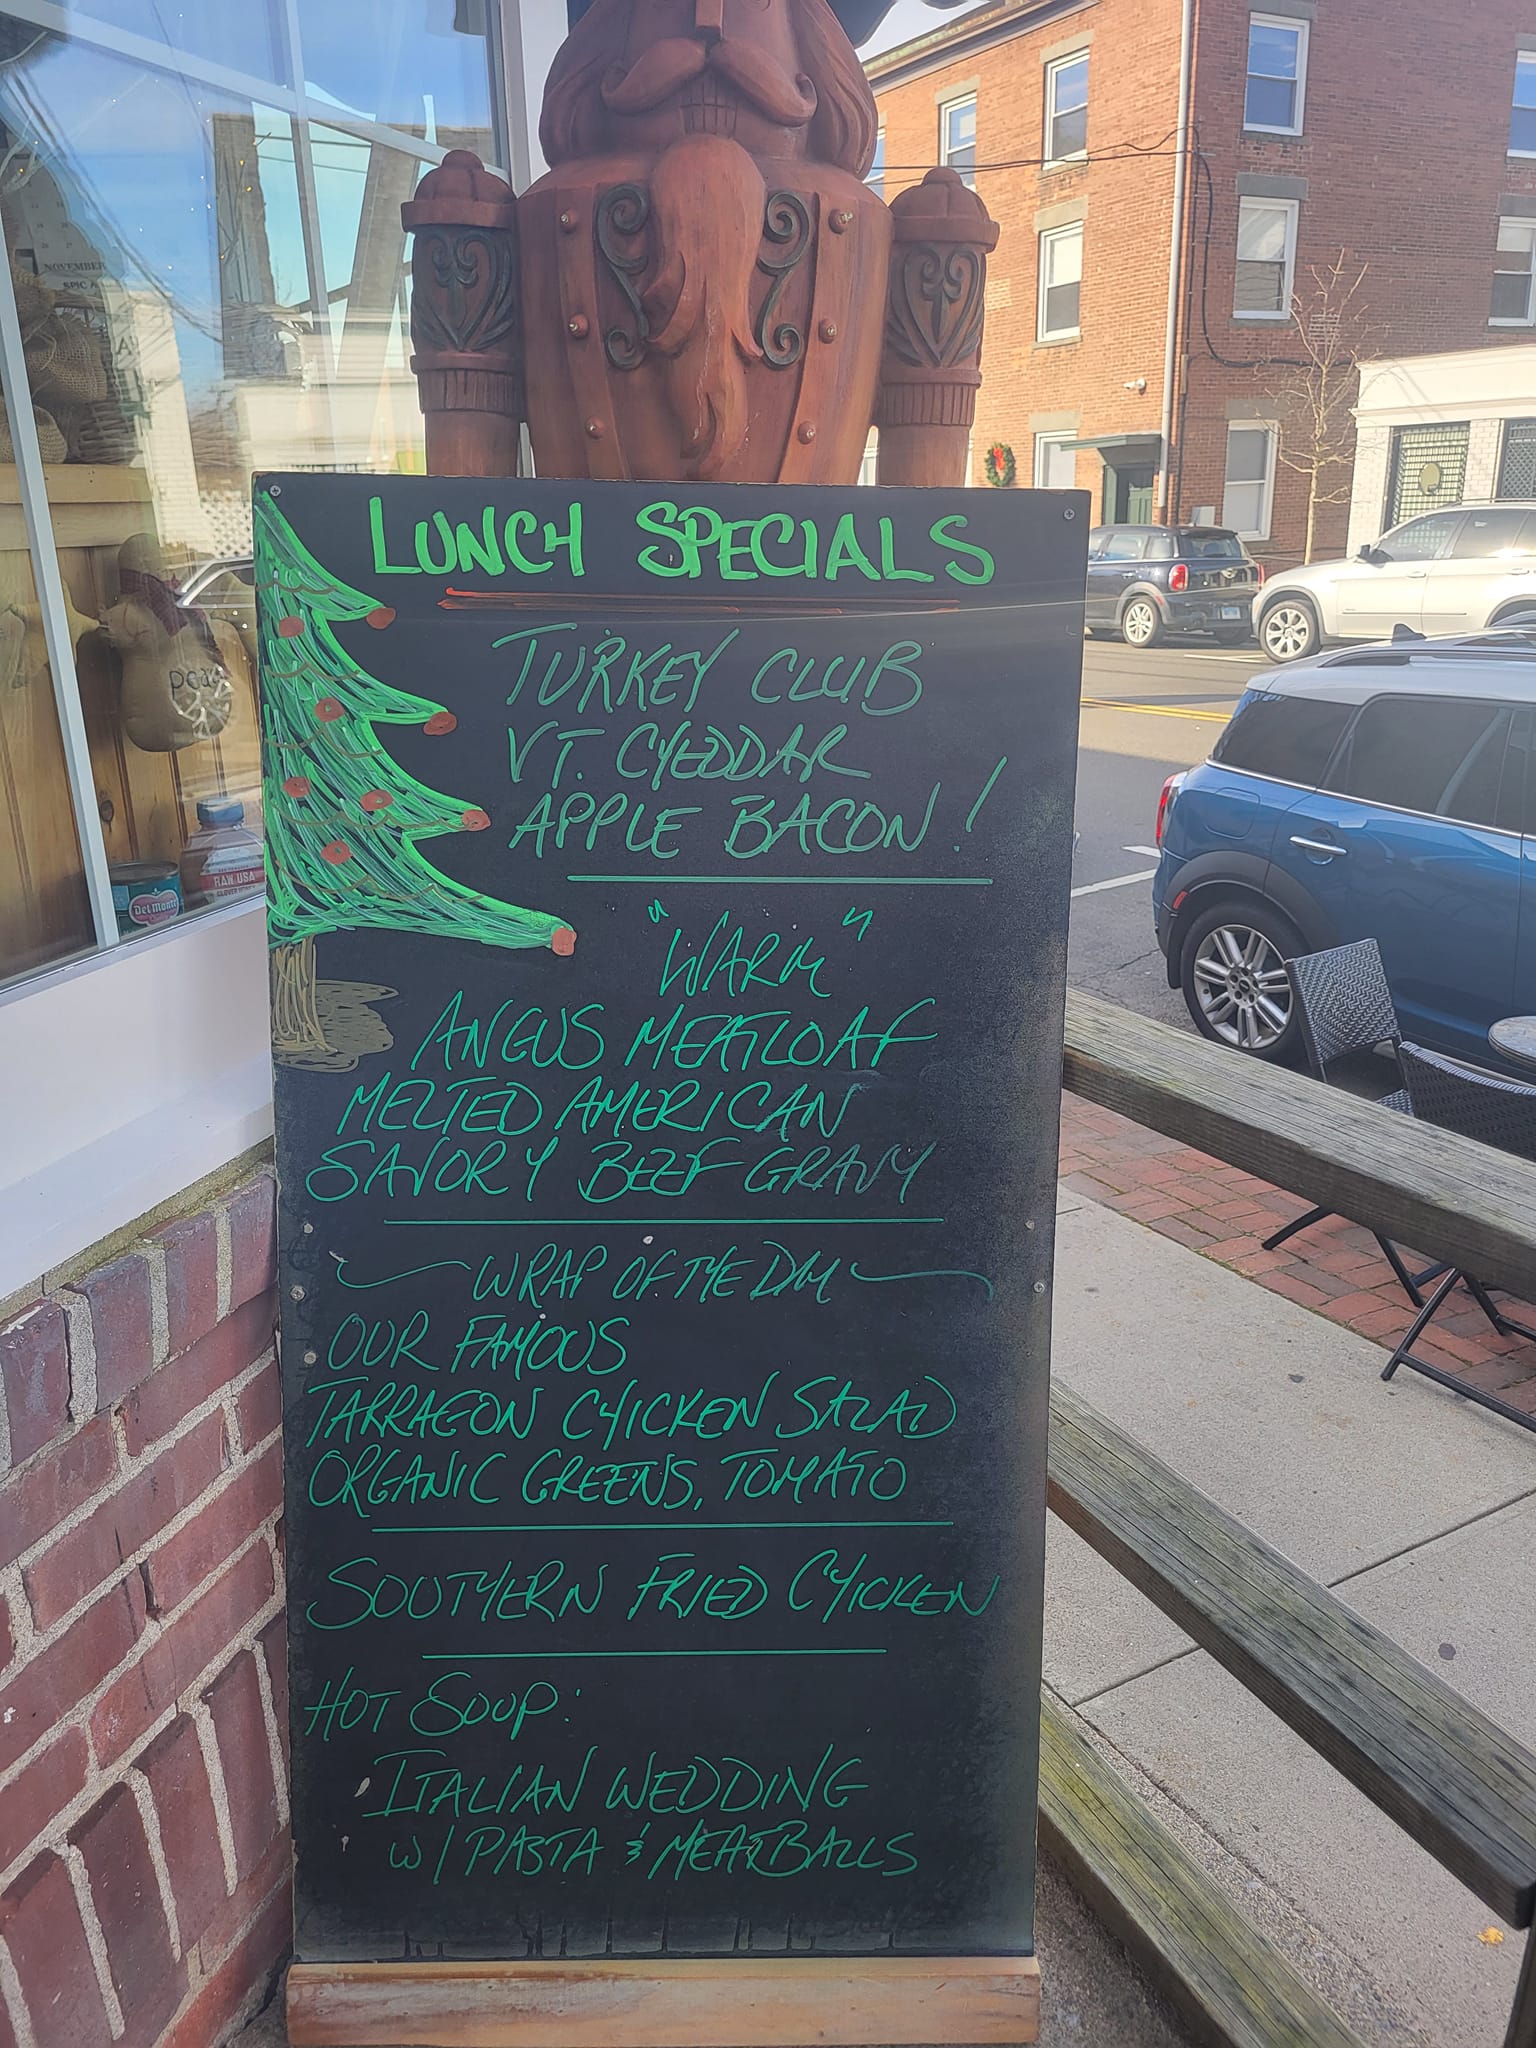 LUNCH SPECIALS
TURKEY CLUB
VT. CHEDDAR
APPLE BACON!
"WARM"
ANGUS MEATLOAF
MELTED AMERICAN
SAVORY BEEF GRAVY
WRAP OF THE DAY
OUR FAMOUS
TARRAGON CHICKEN SALAD
ORGANIC GREENS, TOMATO
SOUTHERN FRIED CHICKEN
HOT SOUP:
ITALIAN WEDDING
W/ PASTA & MEATBALLS
NOVEMBER
Del Monte
RAW USA